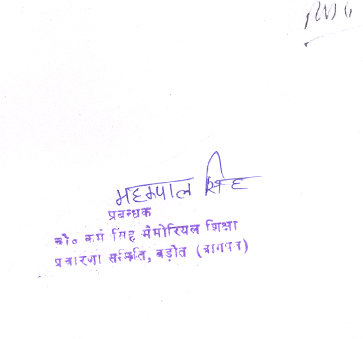 महकपाल सिंह
प्रबन्धक
चौ० कर्म सिंह मैमोरियल शिक्षा
प्रचारणी समिति, बड़ौत (बागपत)